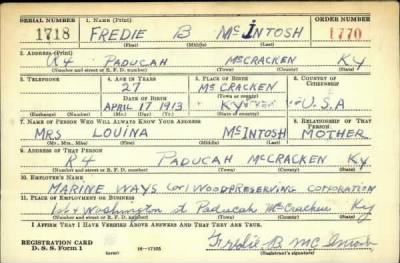 SERIAL NUMBER 1. NAME (Print) ORDER NUMBER
1718 FREDIE B McINTOSH 1770
(First) (Middle) (Last)
2. ADDRESS (Print)
R4 PADUCAH McCRACKEN KY
(Number and street or R. F. D. number) (Town) (County) (State)
3. TELEPHONE 4. AGE IN YEARS 5. PLACE OF BIRTH 6. COUNTRY OF CITIZENSHIP
27 McCRACKEN
DATE OF BIRTH (Town or county)
APRIL 17 1913 KY U.S.A
(Exchange) (Number) (Mo.) (Day) (Yr.) (State or country)
7. NAME OF PERSON WHO WILL ALWAYS KNOW YOUR ADDRESS 8. RELATIONSHIP OF THAT PERSON
MRS LOUINA McINTOSH MOTHER
(Mr., Mrs., Miss) (First) (Middle) (Last)
9. ADDRESS OF THAT PERSON
R4 PADUCAH McCRACKEN Ky
(Number and street or R. F. D. number) (Town) (County) (State)
10. EMPLOYER'S NAME
MARINE WAYS WOODPRESERVING CORPORATION
11. PLACE OF EMPLOYMENT OR BUSINESS
1st & Washington st Paducah McCracken Ky
(Number and street or R. F. D. number) (Town) (County) (State)
I AFFIRM THAT I HAVE VERIFIED ABOVE ANSWERS AND THAT THEY ARE TRUE.
REGISTRATION CARD
D. S. S. Form 1 16-17105 Fredie B McIntosh
(over) (Registrant's signature)